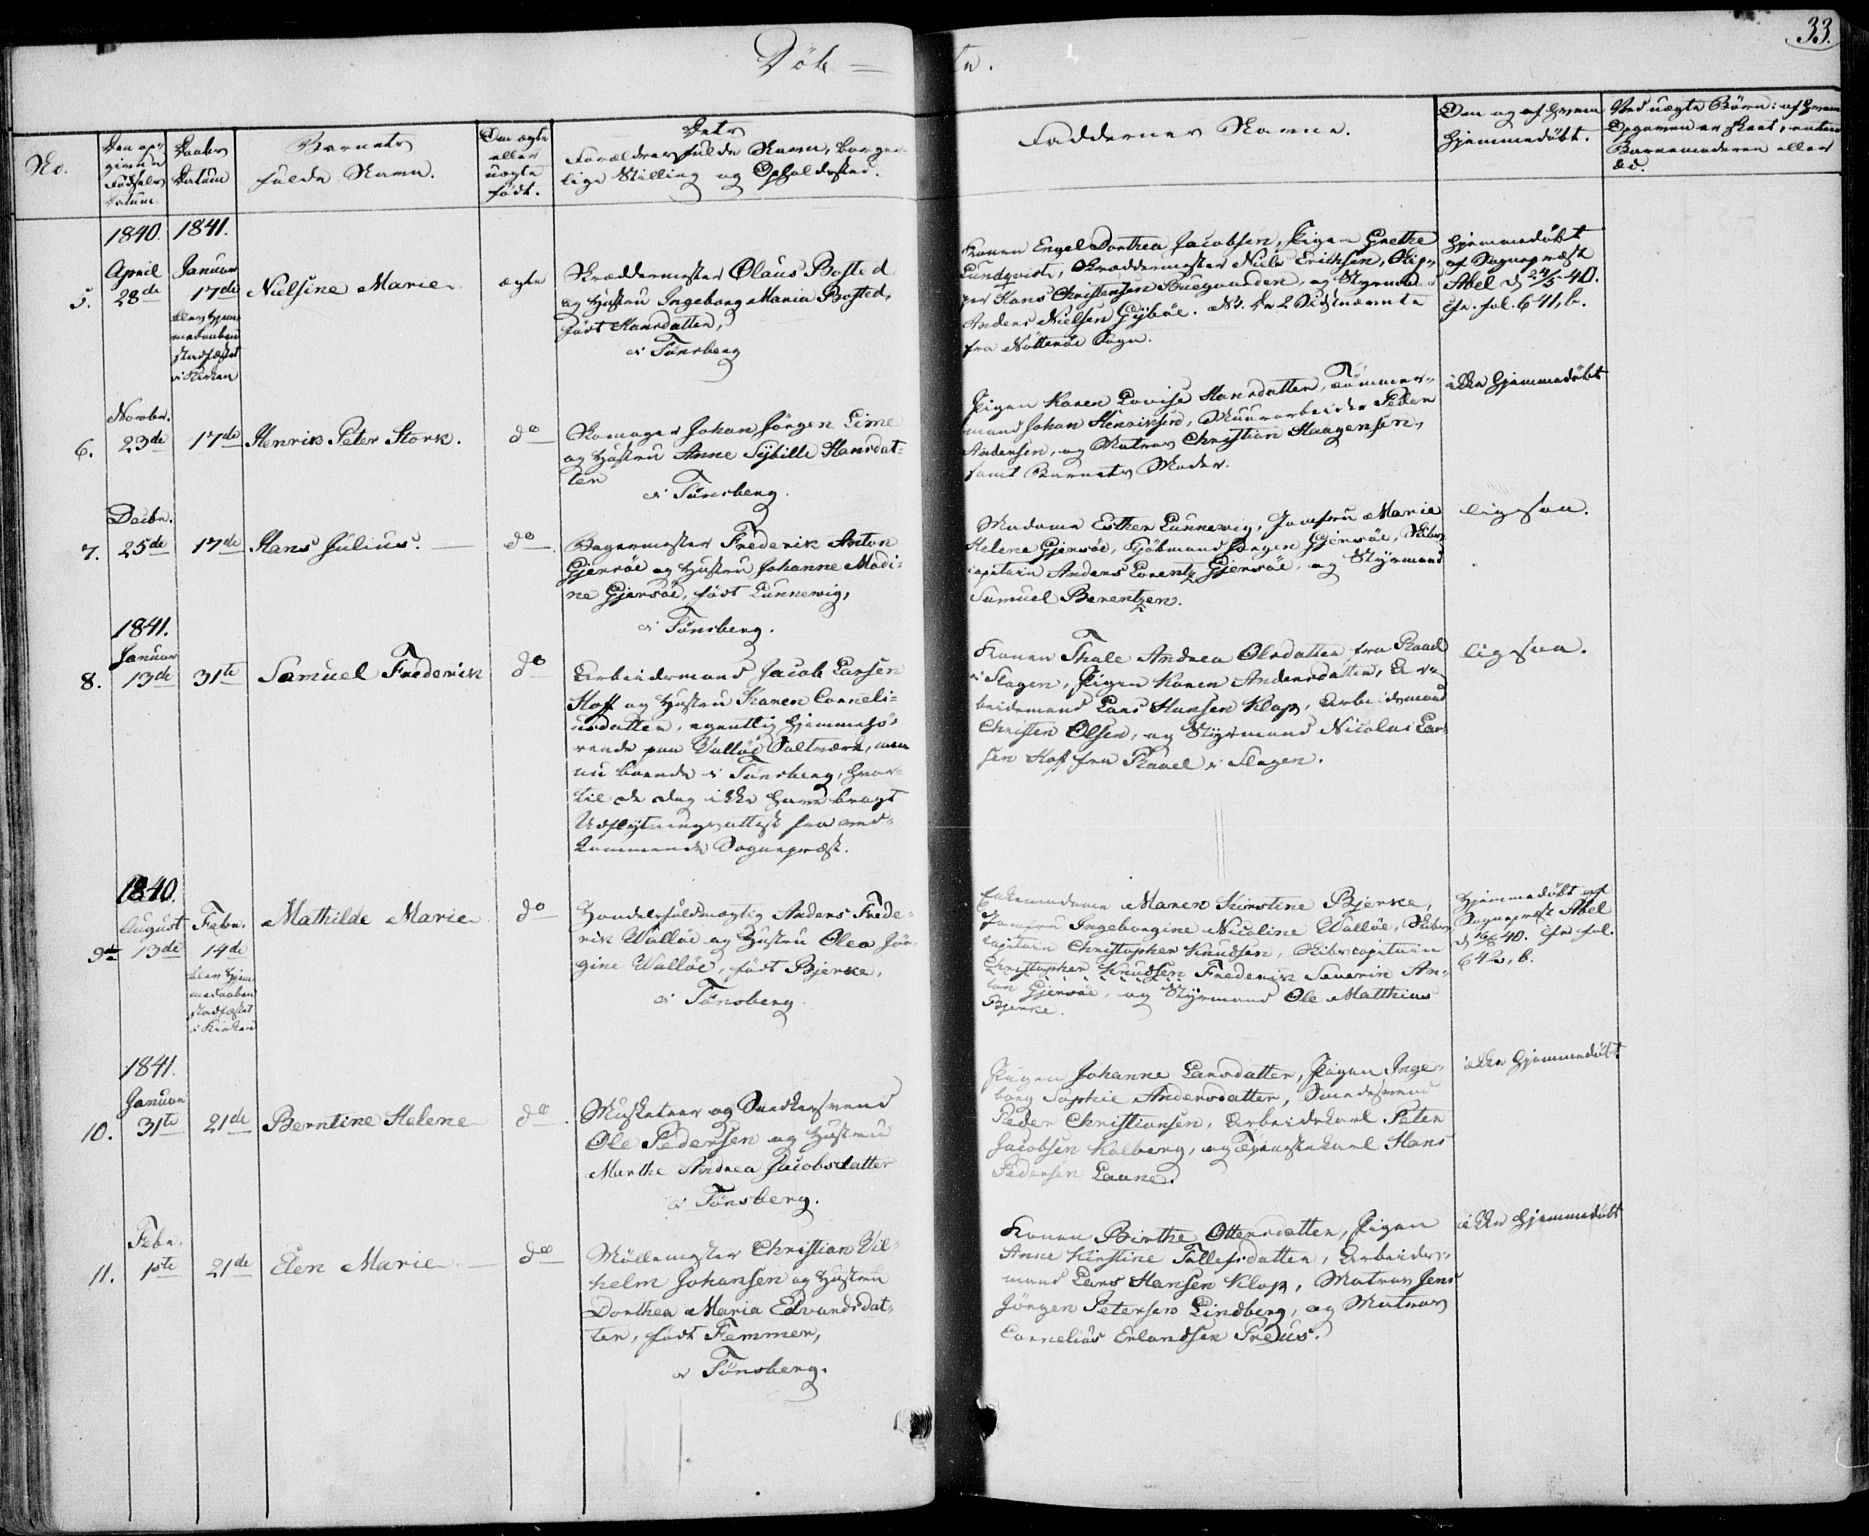 33.
Døbte.
No.
Den op-
givne
Fødsels
Datum.
Daabs
Datum
Barnets
fulde Navn.
Om ægte
eller
uægte
født.
Dets
Forældres fulde Navn, borger-
lige Stilling og Opholdssted.
Faddernes Navne.
Om og af hvem
hjemmedøbt.
Ved uægte Børn: af hvem
Opgaven er skeet, enten
Barnemoderen eller
5.
1840.
April
28de
1841.
Januar
17de
blev hjem-
medaaben
stadfæstet
i Kirken
Nielsine Marie
ægte
Skræddermester Olaus Bosted
og Hustru Ingeborg Maria Bosted,
født Hansdatter,
i Tønsberg
Konen Engel Dorthea Jacobsen, Pigen Grethe
Lundqviste, Skræddermester Niels Eriksen, Skip-
per Hans Christensen Buegaarden, og Styrmand
Anders Nielsen Gÿbøe. NB. de 2 Sidstnævnte
fra Nøtterøe Sogn.
Hjemmedøbt
af Sognepræst
Abel d 24/5 40.
cfr. fol. 641, b.
6.
Novbr.
23de
17de
Henrik Peter Stork.
do
Skomager Johan Jørgen Lime
og Hustru Anne Sÿbille Hansdat-
ter
i Tønsberg.
Pigen Karen Lovise Hansdatter, Tømmer-
mand Johan Henriksen, Muurarbeider Peder
Andersen, og Matros Christian Haagensen,
samt Barnets Moder.
ikke hjemmedøbt
7.
Decbr.
25de
17de
Hans Julius.
do
Bagermester Frederik Anton
Gjersøe og Hustru Johanne Madi-
ne Gjersøe, født Lunnewig,
i Tønsberg.
Madame Esther Lunnewig, Jomfru Marie
Helene Gjersøe, Kjøbmand Jørgen Gjersøe, Skibs-
capitain Anders Lorentz Gjersøe, og Styrmand
Samuel Berentzen.
ligesaa.
8.
1841.
Januar
13de
31te
Samuel Frederik
do
Arbeidsmand Jacob Larsen
Hoff og Hustru Karen Corneli-
usdatter, egentlig hjemmehø-
rende paa Valløe Saltværk, men
nu boende i Tønsberg, hvor-
til de dog ikke have bragt
Udflytningsattest fra ved-
kommende Sognepræst.
Konen Thale Andrea Olsdatter fra Raael
i Slagen, Pigen Karen Andersdatter, Ar-
beidsmand Lars Hansen Klop, Arbeidsmand
Christen Olsen, og Styrmand Nicolai Lar-
sen Hoff fra Raael i Slagen.
ligesaa.
9de
1840.
August
13de
Febr.
14de
blev hjem-
medaaben
stadfæstet
i Kirken
Mathilde Marie
do
Handelsfuldmægtig Anders Frede-
rik Walløe og Hustru Olea Jør-
gine Walløe, født Bjerke,
i Tønsberg.
Enkemadame Maren Kirstine Bjerke,
Jomfru Ingeborgine Nicoline Walløe, Skibs-
capitain Christopher Knudsen, Skibscapitain
Christopher Knudsen Frederik Severin An-
ton Gjersøe, og Styrmand Ole Matthias
Bjerke.
Hjemmedøbt af
Sognepræst Abel
d 16/8 40. cfr. fol.
642, b.
10.
1841.
Januar
31te
21de
Berntine Helene
do
Musketeer og Snedkersvend
Ole Pedersen og Hustru
Marthe Andrea Jacobsdatter
i Tønsberg.
Pigen Johanne Larsdatter, Pigen Inge-
borg Sophie Andersdatter, Smedesvend
Peder Christiansen, Arbeidskarl Peter
Jacobsen Kalberg, og Tjenestekarl Hans
Pedersen Laane.
ikke hjemmedøbt
11.
Febr.
1ste
21de
Elen Marie
do
Møllemester Christian Vil-
helm Johansen og Hustru
Dorthea Maria Edvardsdat-
ter, født Femmer,
i Tønsberg.
Konen Birthe Ottersdatter, Pigen
Anne Kirstine Tollefsdatter, Arbeids-
mand Lars Hansen Klop, Matros Jens
Jørgen Petersen Lindberg, og Matros
Cornelius Erlandsen Freus.
ikke hjemmedøbt